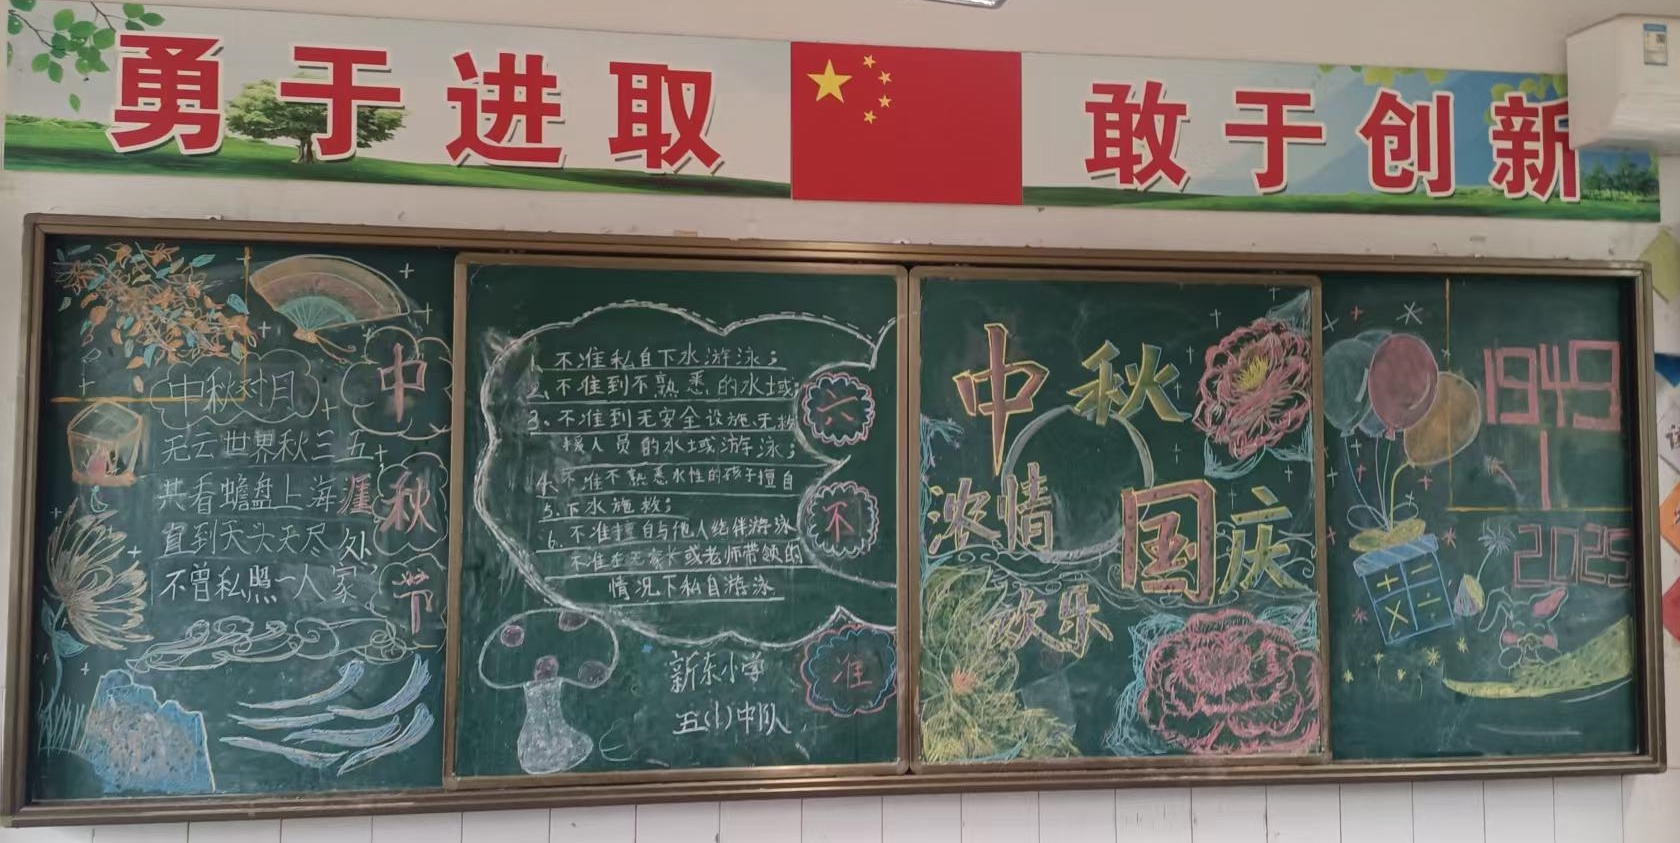 勇于进取
敢于创新
中秋对月
无云世界秋三五
共看蟾盘上海涯
直到天头天尽处
不曾私照一人家
中
秋
节
1、不准私自下水游泳；
2、不准到不熟悉的水域；
3、不准到无安全设施、无救
援人员的水域游泳；
4、不准不熟悉水性的孩子擅自
5、下水施救；
6、不准擅自与他人结伴游泳
不准在无家长或老师带领的
情况下私自游泳
六
不
准
新东小学
五(1)中队
中秋
浓情
国庆
欢乐
1949
|
2025
+ -
× ÷